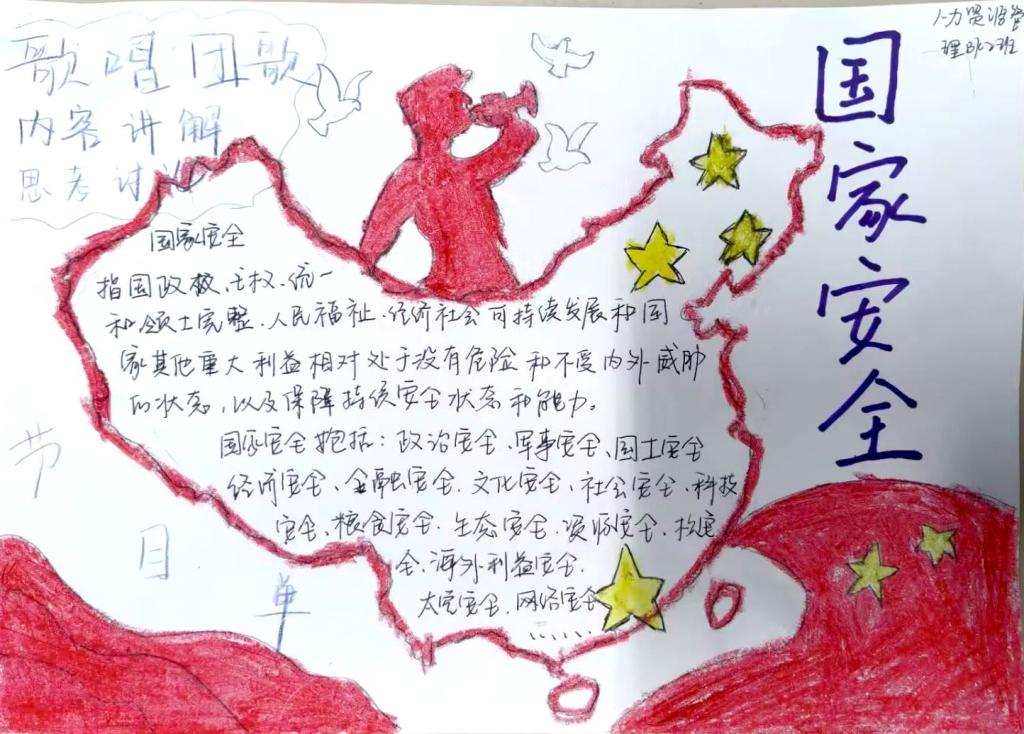 人力资源管
理2班
国家安全
歌唱团歌
内容讲解
思考讨
国家安全
指国政权、主权、统一
和领土完整、人民福祉、经济社会可持续发展和国
家其他重大利益相对处于没有危险和不受内外威胁
的状态,以及保障持续安全状态和能力。
国家安全抱括:政治安全、军事安全、国土安全
经济安全、金融安全、文化安全、社会安全、科技
安全、粮食安全、生态安全、资源安全、核安
全、海外利益安全、
太空安全、网络安全
......
节
目
单